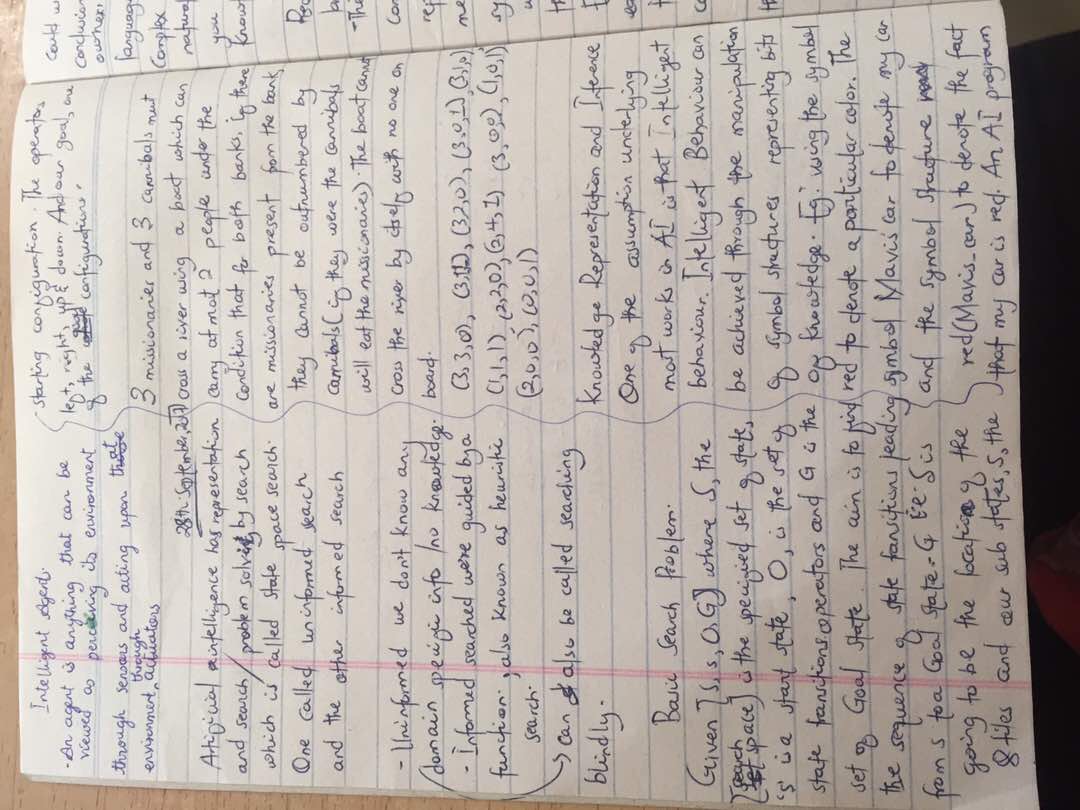 Intelligent Agent.
- An agent is anything that can be
viewed as perceiving its environment
through sensors and acting upon that
environment through actuators
28th September, 2017
Artificial intelligence has representation
and search / problem solving by search
which is called state space search.
One called uninformed search
and the other informed search
- Uninformed we dont know any
domain specific info / no knowledge.
- Informed searched were guided by a
function, also known as heuristic
search.
→ can also be called searching
blindly.
Basic Search Problem.
Given [S, s, O, G] where S, the
(search space) is the specified set of state,
's' is a start state, O, is the set of
state transitions operators and G is the
set of Goal state. The aim is to find
the sequence of state transitions leading
from s to a Goal State - G i.e S is
going to be the location of the
8 tiles and our sub states, S, the
starting configuration. The operators
left, right, up & down. And our goal, one
of the configurations.
3 missionaries and 3 cannibals must
cross a river using a boat which can
carry at most 2 people under the
condition that for both banks, if there
are missionaries present from the bank,
they cannot be outnumbered by
cannibals (if they were the cannibals
will eat the missionaries). The boat cannot
cross the river by itself with no one on
board.
(3,3,0), (3,1,1), (3,2,0), (3,0,1) (3,1,0)
(1,1,1) (2,2,0) (3,0,2) (1,0,1)
(2,0,0), (0,0,1)
Knowledge Representation and Inference
One of the assumption underlying
most works in AI is that Intelligent
behaviour. Intelligent Behaviour can
be achieved through the manipulation
of symbol structures representing bits
of knowledge. Eg: using the symbol
red to denote a particular color. The
symbol Mavis car to denote my car
and the symbol structure
red(Mavis_car) to denote the fact
that my car is red. An AI program
could
conclusion
owner.
language
Complex
natural
you
know